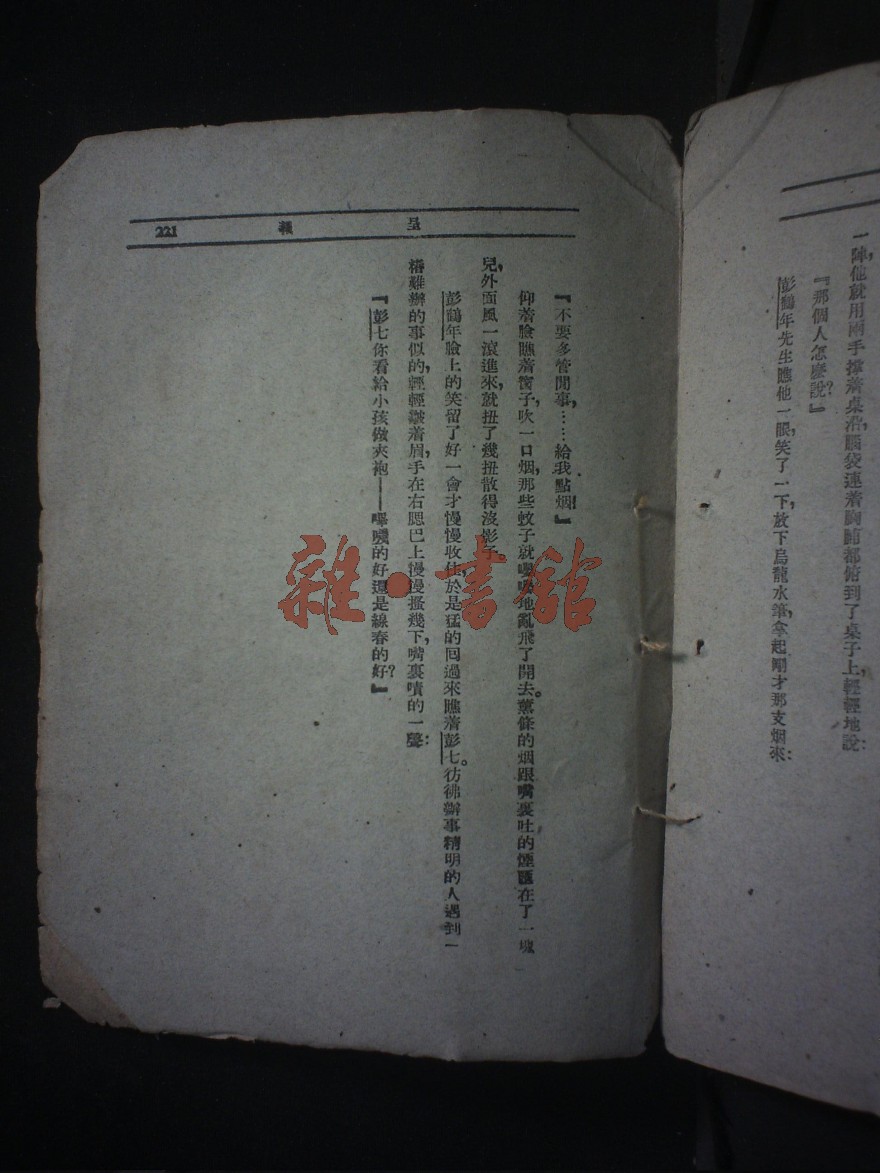 一陣他就用兩手撑着桌沿,腦袋連着胸脯都俯到了桌子上,輕輕地說:
『那個人怎麼說?』
彭鶴年先生瞧他一眼,笑了一下,放下烏龍水筆,拿起剛才那支烟來:
呈報 221
『不要多管閒事,……給我點烟!』
仰着臉瞧着窗子,吹一口烟,那些蚊子就嗡嗡地亂飛了開去。薰條的烟跟嘴裏吐的煙匯在了一塊
兒,外面風一滾進來,就扭了幾扭散得沒影子。
彭鶴年臉上的笑留了好一會才慢慢收住,於是猛的囘過來瞧着彭七。彷彿辦事精明的人遇到一
樁難辦的事似的,輕輕皺着眉,手在右腮巴上慢慢搔幾下,嘴裏嘖的一聲:
『彭七你看給小孩做夾袍——嗶嘰的好還是線春的好?』
雜·書館